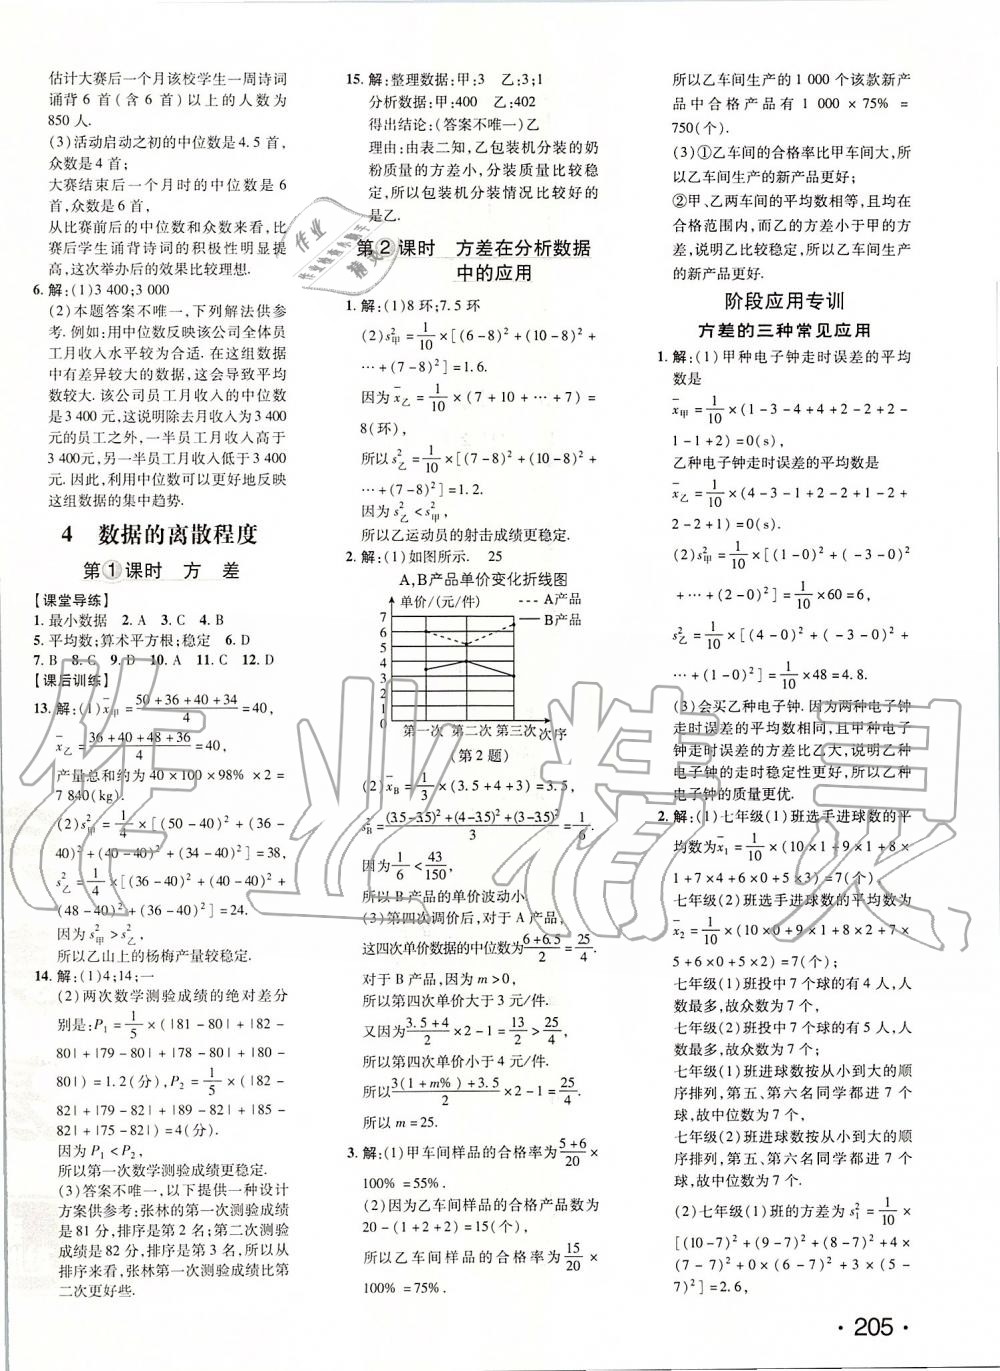 估计大赛后一个月该校学生一周诗词
诵背 6 首(含 6 首)以上的人数为
850 人.
(3)活动启动之初的中位数是4.5 首,
众数是 4 首;
大赛结束后一个月时的中位数是 6
首,众数是 6 首,
从比赛前后的中位数和众数来看,比
赛后学生诵背诗词的积极性明显提
高,这次举办后的效果比较理想.
6. 解:(1)3 400;3 000
(2)本题答案不唯一,下列解法供参
考. 例如:用中位数反映该公司全体员
工月收入水平较为合适. 在这组数据
中有差异较大的数据,这会导致平均
数较大. 该公司员工月收入的中位数
是 3 400 元,这说明除去月收入为 3 400
元的员工之外,一半员工月收入高于
3 400 元,另一半员工月收入低于 3 400
元. 因此,利用中位数可以更好地反映
这组数据的集中趋势.
4 数据的离散程度
第①课时 方 差
【课堂导练】
1. 最小数据 2. A 3. C 4. B
5. 平均数;算术平方根;稳定 6. D
7. B 8. C 9. D 10. A 11. C 12. D
【课后训练】
13. 解:(1)x̄甲=(50+36+40+34)/4=40,
x̄乙=(36+40+48+36)/4=40,
产量总和约为 40×100×98% ×2=
7 840(kg).
(2)s²甲=1/4×[(50-40)²+(36-
40)²+(40-40)²+(34-40)²]=38,
s²乙=1/4×[(36-40)²+(40-40)²+
(48-40)²+(36-40)²]=24.
因为 s²甲>s²乙,
所以乙山上的杨梅产量较稳定.
14. 解:(1)4;14;一
(2)两次数学测验成绩的绝对差分
别是:P₁=1/5×(|81-80|+|82-
80|+|79-80|+|78-80|+|80-
80|)=1.2(分),P₂=1/5×(|82-
82|+|79-82|+|89-82|+|85-
82|+|75-82|)=4(分).
因为 P₁<P₂,
所以第一次数学测验成绩更稳定.
(3)答案不唯一,以下提供一种设计
方案供参考:张林的第一次测验成绩
是 81 分,排序是第 2 名;第二次测验
成绩是 82 分,排序是第 3 名,所以从
排序来看,张林第一次测验成绩比第
二次更好些.
15. 解:整理数据:甲:3 乙:3;1
分析数据:甲:400 乙:402
得出结论:(答案不唯一)乙
理由:由表二知,乙包装机分装的奶
粉质量的方差小,分装质量比较稳
定,所以包装机分装情况比较好的
是乙.
第②课时 方差在分析数据
中的应用
1. 解:(1)8 环;7.5 环
(2)s²甲=1/10×[(6-8)²+(10-8)²+
…+(7-8)²]=1.6.
因为x̄乙=1/10×(7+10+…+7)=
8(环),
所以s²乙=1/10×[(7-8)²+(10-8)²+
…+(7-8)²]=1.2.
因为 s²乙<s²甲,
所以乙运动员的射击成绩更稳定.
2. 解:(1)如图所示. 25
A,B产品单价变化折线图
单价/(元/件)
A产品
B产品
7
6
5
4
3
2
1
0
第一次 第二次 第三次 次序
(第 2 题)
(2)x̄B=1/3×(3.5+4+3)=3.5,
s²B=((3.5-3.5)²+(4-3.5)²+(3-3.5)²)/3=1/6.
因为1/6<43/150,
所以 B 产品的单价波动小.
(3)第四次调价后,对于 A 产品,
这四次单价数据的中位数为(6+6.5)/2=25/4;
对于 B 产品,因为 m>0,
所以第四次单价大于 3 元/件.
又因为(3.5+4)/2×2-1=13/2>25/4,
所以第四次单价小于 4 元/件.
所以(3(1+m%)+3.5)/2×2-1=25/4,
所以 m=25.
3. 解:(1)甲车间样品的合格率为(5+6)/20×
100%=55%.
(2)因为乙车间样品的合格产品数为
20-(1+2+2)=15(个),
所以乙车间样品的合格率为15/20×
100%=75%.
所以乙车间生产的 1 000 个该款新产
品中合格产品有 1 000×75%=
750(个).
(3)①乙车间的合格率比甲车间大,所
以乙车间生产的新产品更好;
②甲、乙两车间的平均数相等,且均在
合格范围内,而乙的方差小于甲的方
差,说明乙比较稳定,所以乙车间生产
的新产品更好.
阶段应用专训
方差的三种常见应用
1. 解:(1)甲种电子钟走时误差的平均
数是
x̄甲=1/10×(1-3-4+4+2-2+2-
1-1+2)=0(s),
乙种电子钟走时误差的平均数是
x̄乙=1/10×(4-3-1+2-2+1-2+
2-2+1)=0(s).
(2)s²甲=1/10×[(1-0)²+(-3-0)²
+…+(2-0)²]=1/10×60=6,
s²乙=1/10×[(4-0)²+(-3-0)²+
…+(1-0)²]=1/10×48=4.8.
(3)会买乙种电子钟. 因为两种电子钟
走时误差的平均数相同,且甲种电子
钟走时误差的方差比乙大,说明乙种
电子钟的走时稳定性更好,所以乙种
电子钟的质量更优.
2. 解:(1)七年级(1)班选手进球数的平
均数为x̄₁=1/10×(10×1+9×1+8×
1+7×4+6×0+5×3)=7(个);
七年级(2)班选手进球数的平均数为
x̄₂=1/10×(10×0+9×1+8×2+7×
5+6×0+5×2)=7(个).
七年级(1)班投中 7 个球的有 4 人,人
数最多,故众数为 7 个;
七年级(2)班投中 7 个球的有 5 人,人
数最多,故众数为 7 个;
七年级(1)班进球数按从小到大的顺
序排列,第五、第六名同学都进 7 个
球,故中位数为 7 个;
七年级(2)班进球数按从小到大的顺
序排列,第五、第六名同学都进 7 个
球,故中位数为 7 个.
(2)七年级(1)班的方差为 s²₁=1/10×
[(10-7)²+(9-7)²+(8-7)²+
4×0+0×(6-7)²+3×(5-
7)²]=2.6,
· 205 ·
作业精灵